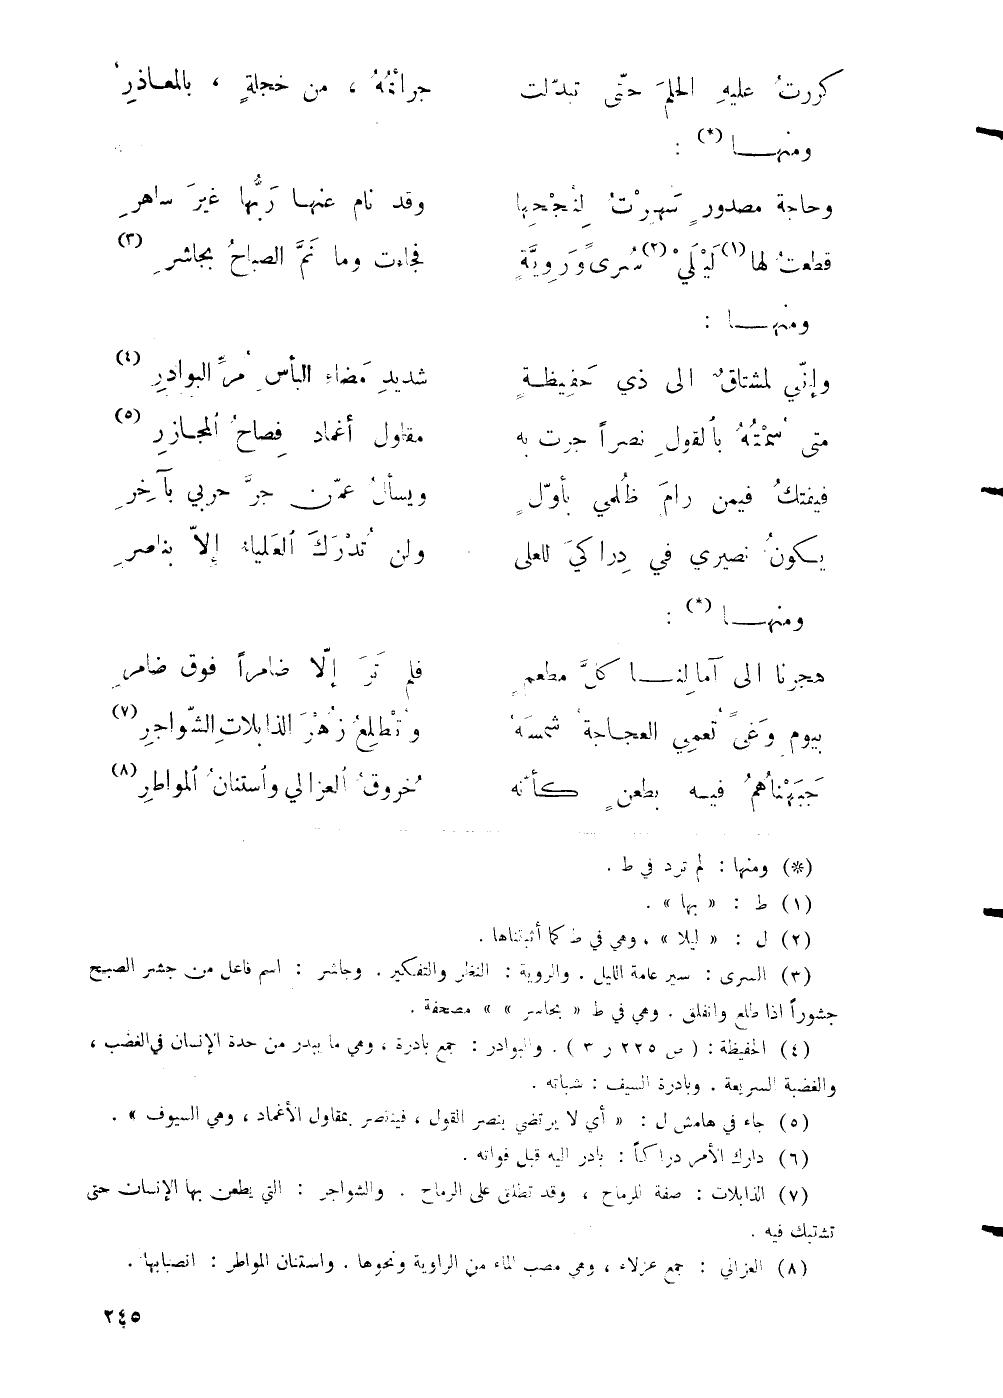 كررتُ عليهِ الحلمَ حتّى تبدّلت جرائمُهُ ، من خجلةٍ ، بالمعـاذرِ
ومنهـــا (*) :
وحاجة مصدورٍ سَهِرْتُ لِنُجْحِها وقد نام عنهـا رَبُّها غيرَ ساهرِ
قطعتُ لها (١) لَيْلَيْ (٢) سُرىً وَرَوِيَّةٍ فجاءت وما نَمَّ الصباحُ بجاشرِ (٣)
ومنهـــا :
وإنّي لمشتاقٌ الى ذي حَفِيظـةٍ شديدِ مَضاءِ البأسِ مُرِّ البوادرِ (٤)
متى سُمْتُهُ بٱلقولِ نصراً جرت به مقاول أغماد فِصاحُ ٱلمجـازرِ (٥)
فيفتكُ فيمن رامَ ظُلمي بأوّلٍ ويسألُ عمّن جرَّ حربي بآخِرِ
يكونُ نصيري في دِراكيَ للعلى ولن تُدْرَكَ ٱلعَلياءُ إلاّ بناصرِ
ومنهـــا (*) :
هجرنا الى آمالِنـــا كلَّ مطعمٍ فلم تَرَ إلّا ضامراً فوق ضامرِ
بيوم وَغىً تُعمِي العجـاجةُ شمسَهُ وتُطْلِعُ زُهْرَ الذابلاتِ الشّواجرِ (٧)
جَبَهْناهُمُ فيـه بطعنٍ كـأنّه خُروقُ ٱلعزالي وٱستنانُ ٱلمواطرِ (٨)
(*) ومنها : لم ترد في ط .
(١) ط : « بها » .
(٢) ل : « ليلا » ، وهي في ط كما أثبتناها .
(٣) السرى : سير عامة الليل . والروية : النظر والتفكير . وجاشر : اسم فاعل من جشر الصبح
جشوراً اذا طلع وانفلق . وهي في ط « بحاسر » » مصحفة .
(٤) الحفيظة : ( ص ٢٢٥ ر ٣ ) . والبوادر : جمع بادرة ، وهي ما يبدر من حدة الإنسان في الغضب ،
والغضبة السريعة . وبادرة السيف : شباته .
(٥) جاء في هامش ل : « أي لا يرتضي بنصر القول ، فينتصر بمقاول الأغماد ، وهي السيوف » .
(٦) دارك الأمر دراكاً : بادر اليه قبل فواته .
(٧) الذابلات : صفة للرماح ، وقد تطلق على الرماح . والشواجر : التي يطعن بها الإنسان حتى
تشتبك فيه .
(٨) العزالي : جمع عزلاء ، وهي مصب الماء من الراوية ونحوها . واستنان المواطر : انصبابها .
٢٤٥